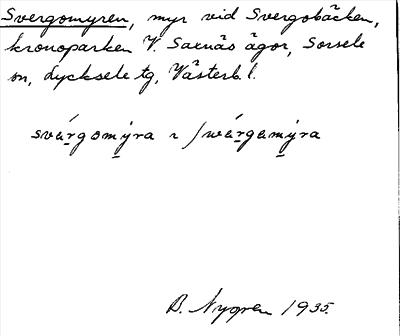 Svergomyren, myr vid Svergobäcken,
kronoparken V. Saxnäs ägor, Sorsele
sn, Lycksele tg, Västerb. l.
svárgomýra ι ʃwárgamýra
B. Nygren 1935.